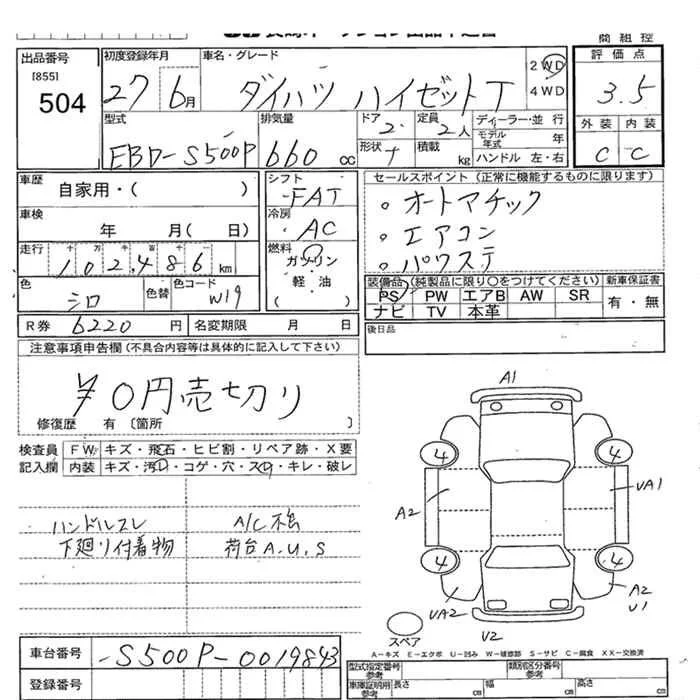 商 組 控
出品番号
[855]
504
初度登録年月
27 6月
車名・グレード
ダイハツ ハイゼットT
2WD
4WD
評 価 点
3.5
外 装 内 装
C C
型式
EBD-S500P
排気量
660 cc
ドア
2
定員
2人
形状
積載
kg
ディーラー・並 行
モデル年式 年
ハンドル 左・右
車歴
自家用・( )
車検
年 月( 日)
走行 十 万 千 百 十 一
102,486 km
色
シロ
色替
色コード
W19
シフト
FAT
冷房
AC
燃料
ガソリン
・
軽 油
( )
セールスポイント (正常に機能するものに限ります)
。オートマチック
。エアコン
。パワステ
装備品 (純製品に限り○をつけてください) 新車保証書
PS PW エアB AW SR
ナビ TV 本革
有・無
R券 6220 円 名変期限 月 日
後日品
注意事項申告欄 (不具合内容等は具体的に記入して下さい)
¥0円売切り
修復歴 有 〔箇所 〕
検査員 FW キズ・飛石・ヒビ割・リペア跡・X要
記入欄 内装 キズ・汚・コゲ・穴・スレ・キレ・破レ
ハンドルスレ
下廻り付着物
荷台A.U.S
A1
4 4
A2 UA1
4 4
UA2
A2
U1
U2
スペア
A-キズ E-エクボ U-凹み W-補修跡 S-サビ C-腐食 XX-交換済
車台番号
-S500P-0019843
登録番号
型式指定番号
参考
類別区分番号
参考
車庫証明用
参考
長さ cm 幅 cm 高さ cm